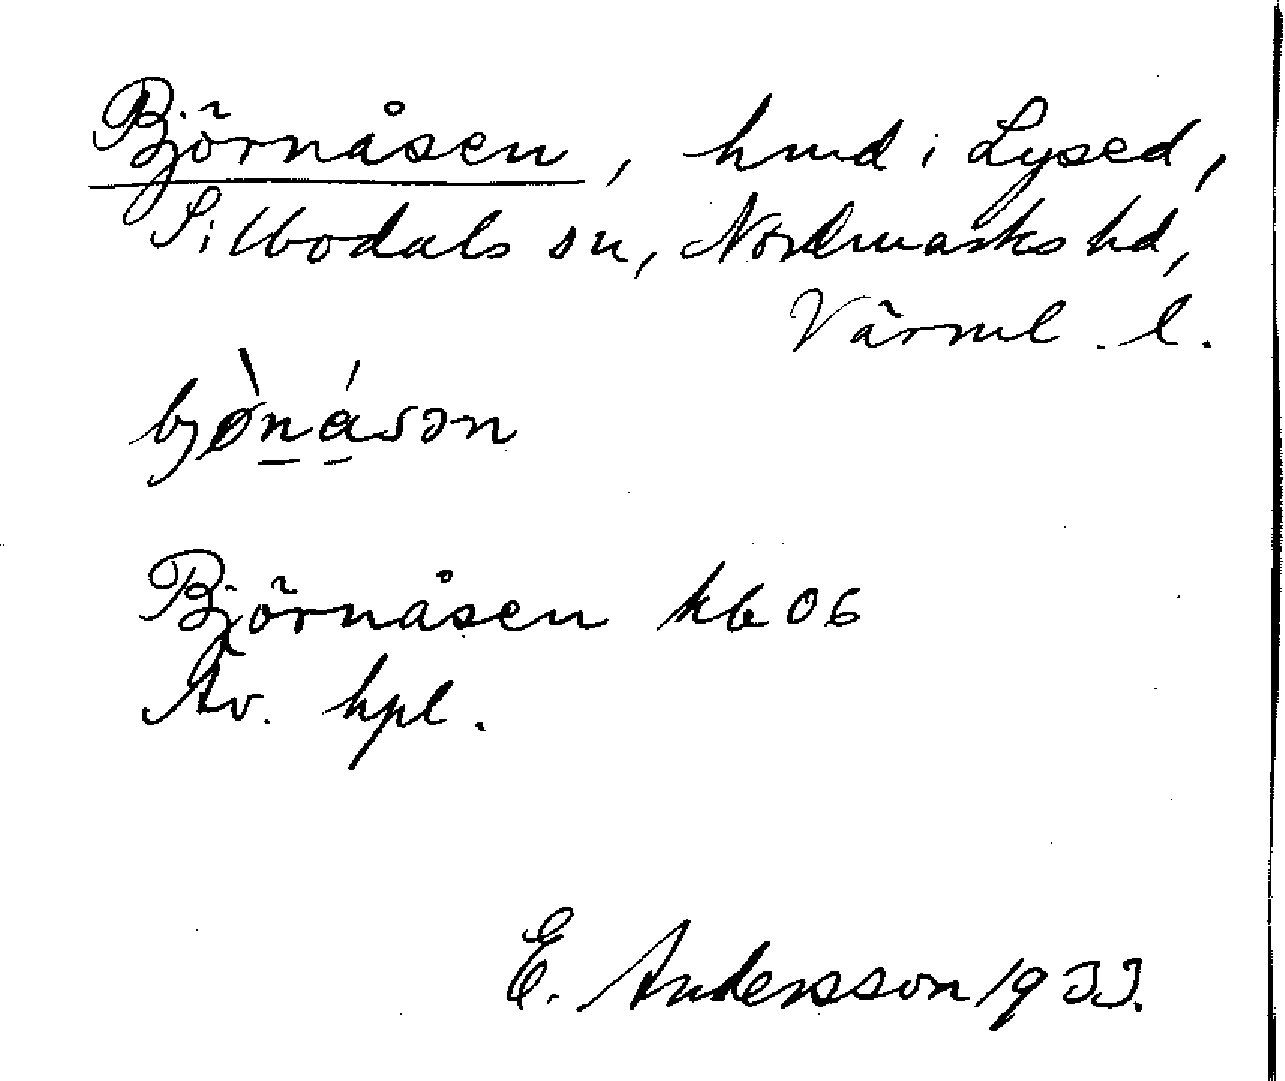 Björnåsen, hmd i Lysed,
Silbodals sn, Nordmarks hd,
Värml. l.
bjø̀ṉá̱sən
Björnåsen kb 06
Äv. hpl.
E. Andersson 1933.